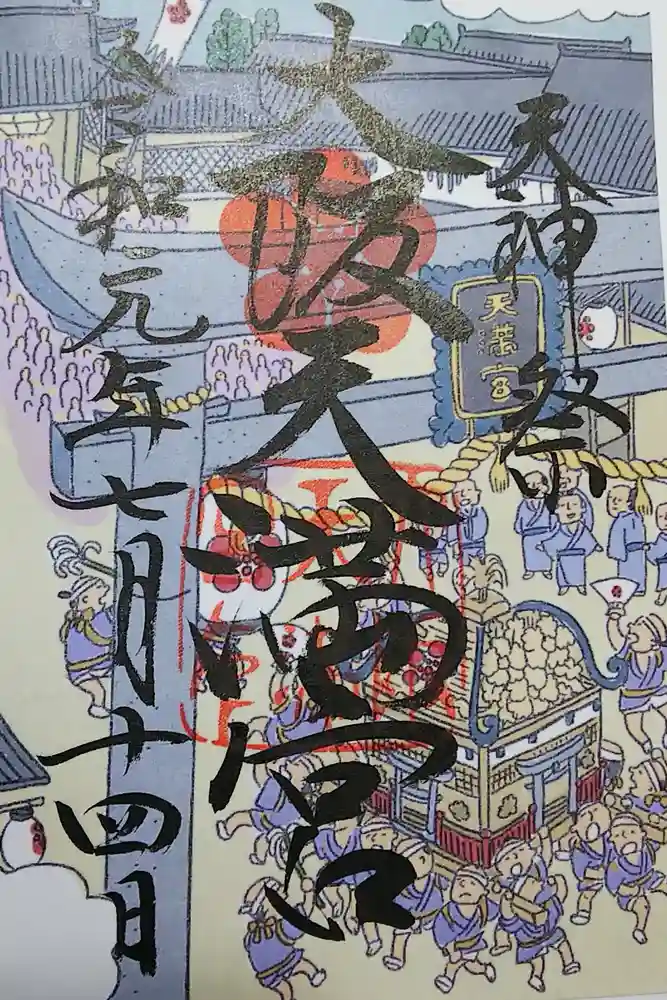 天神祭
天満宮
大阪天満宮
令和元年七月十四日